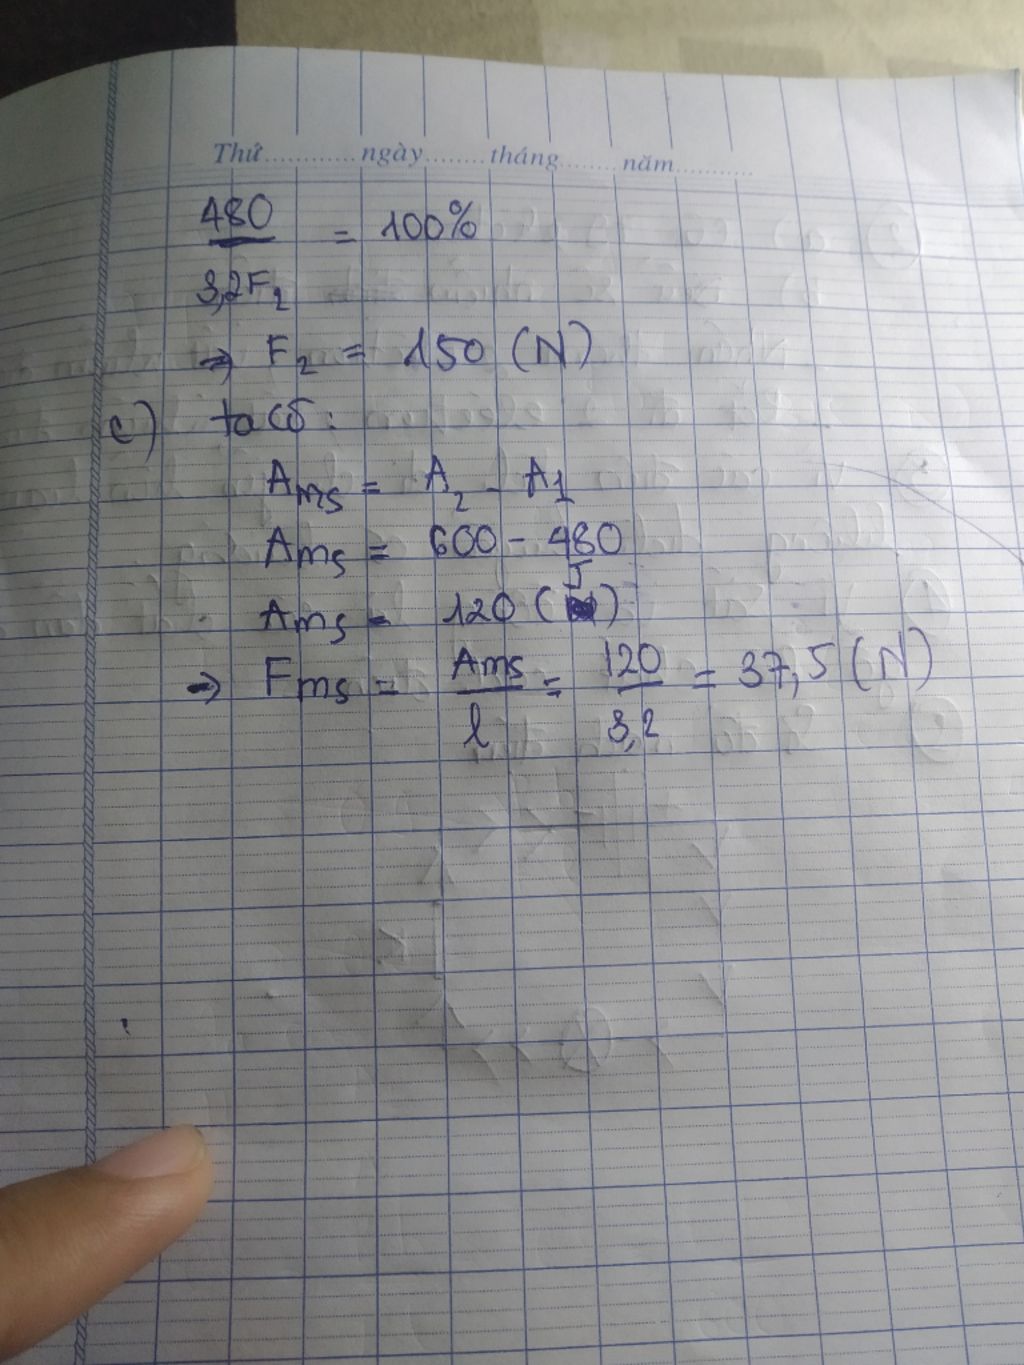 Thứ............ngày........tháng........năm...........
480 / 3,2F₂ = 100%
⇒ F₂ = 150 (N)
c) ta có :
Ams = A₂ - A1
Ams = 600 - 480
Ams = 120 (J)
⇒ Fms = Ams / l = 120 / 3,2 = 37,5 (N)